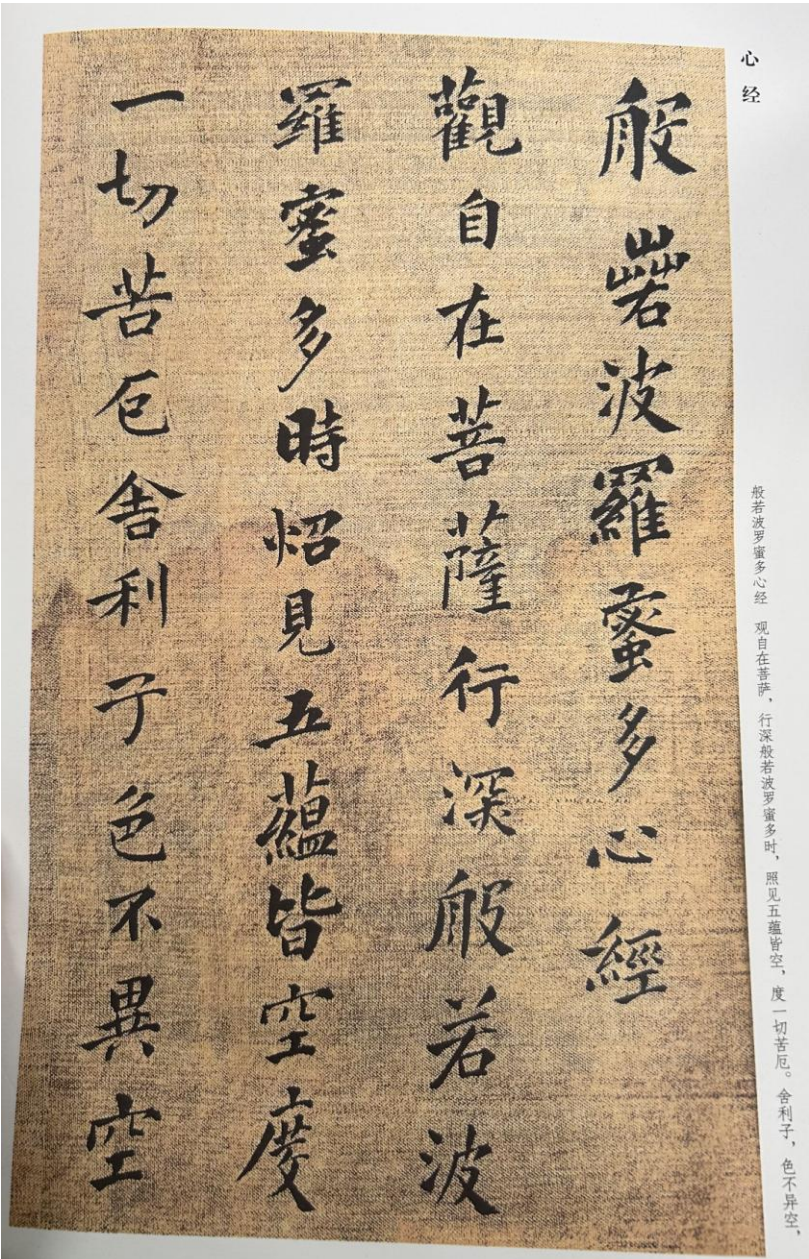 心经
般若波羅蜜多心經
觀自在菩薩行深般若波
羅蜜多時炤見五蘊皆空度
一切苦厄舍利子色不異空
般若波罗蜜多心经　观自在菩萨，行深般若波罗蜜多时，照见五蕴皆空，度一切苦厄。舍利子，色不异空，